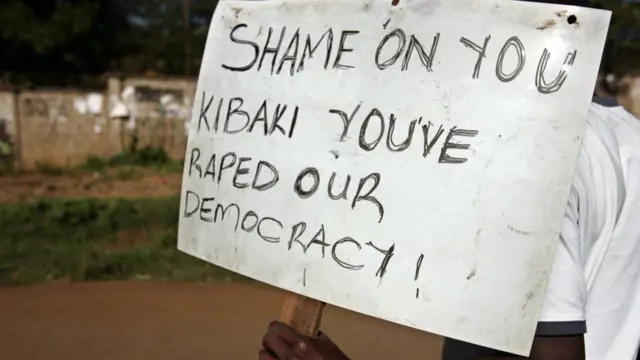 SHAME ON YOU
KIBAKI YOU'VE
RAPED OUR
DEMOCRACY!